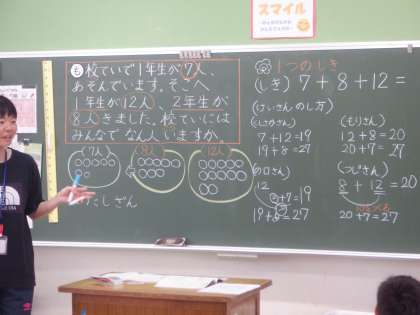 スマイル
も 校ていで1年生が7人、
あそんでいます。そこへ
1年生が12人、2年生が
8人きました。校ていには
みんなで なん人いますか。
(7人)
8人
12人
たしざん
1つのしき
(しき) 7+8+12=
(けいさんのし方)
7+12=19
19+8=27
(もりさん)
12+8=20
20+7=27
12
+7=19
19+8=27
(つじさん)
8+12=20
20+7=27